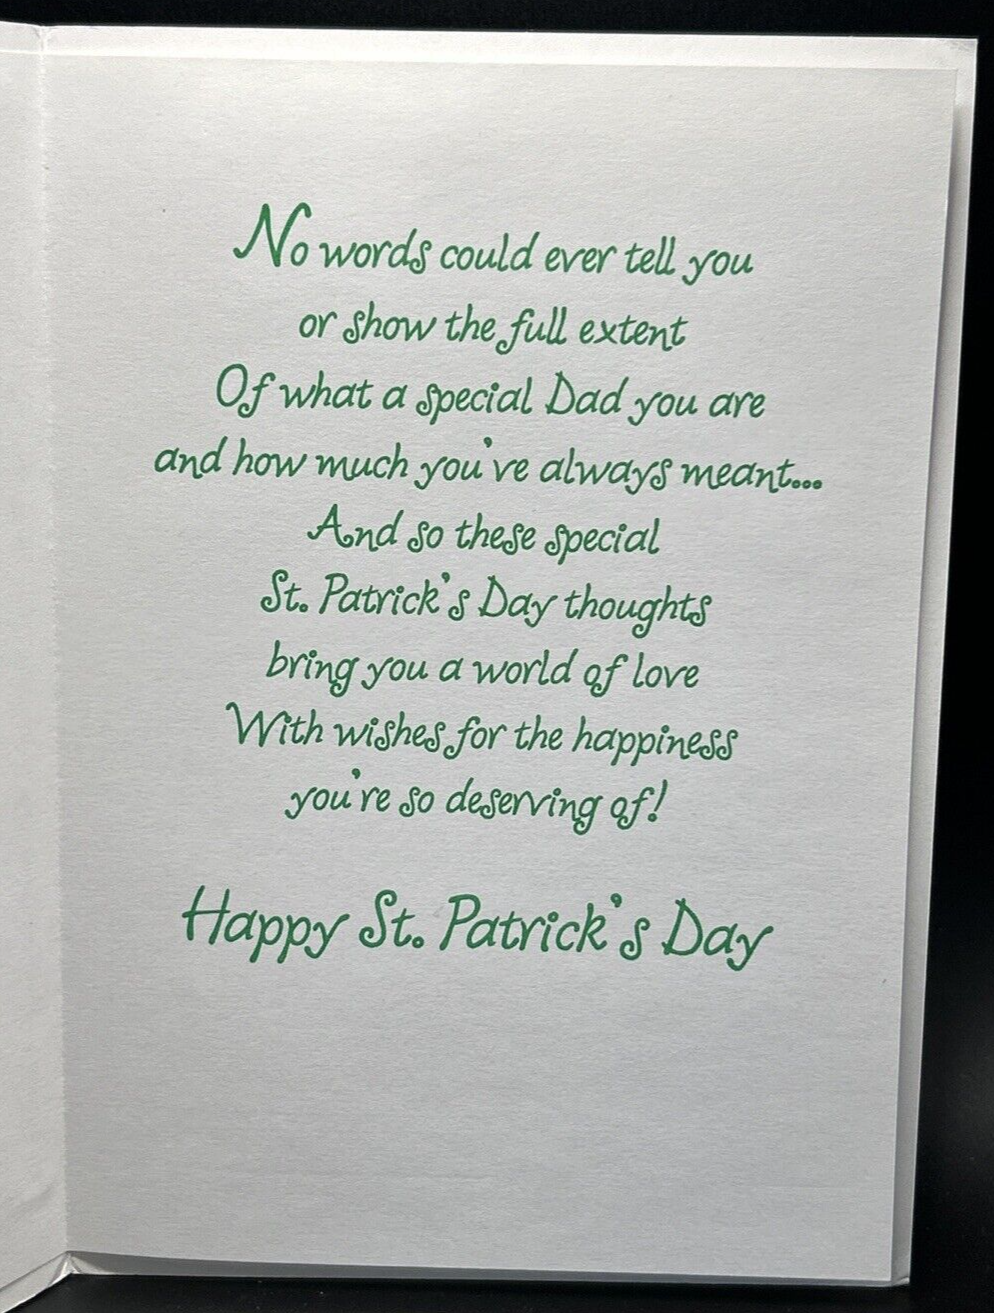 No words could ever tell you
or show the full extent
Of what a special Dad you are
and how much you've always meant...
And so these special
St. Patrick's Day thoughts
bring you a world of love
With wishes for the happiness
you're so deserving of!
Happy St. Patrick's Day